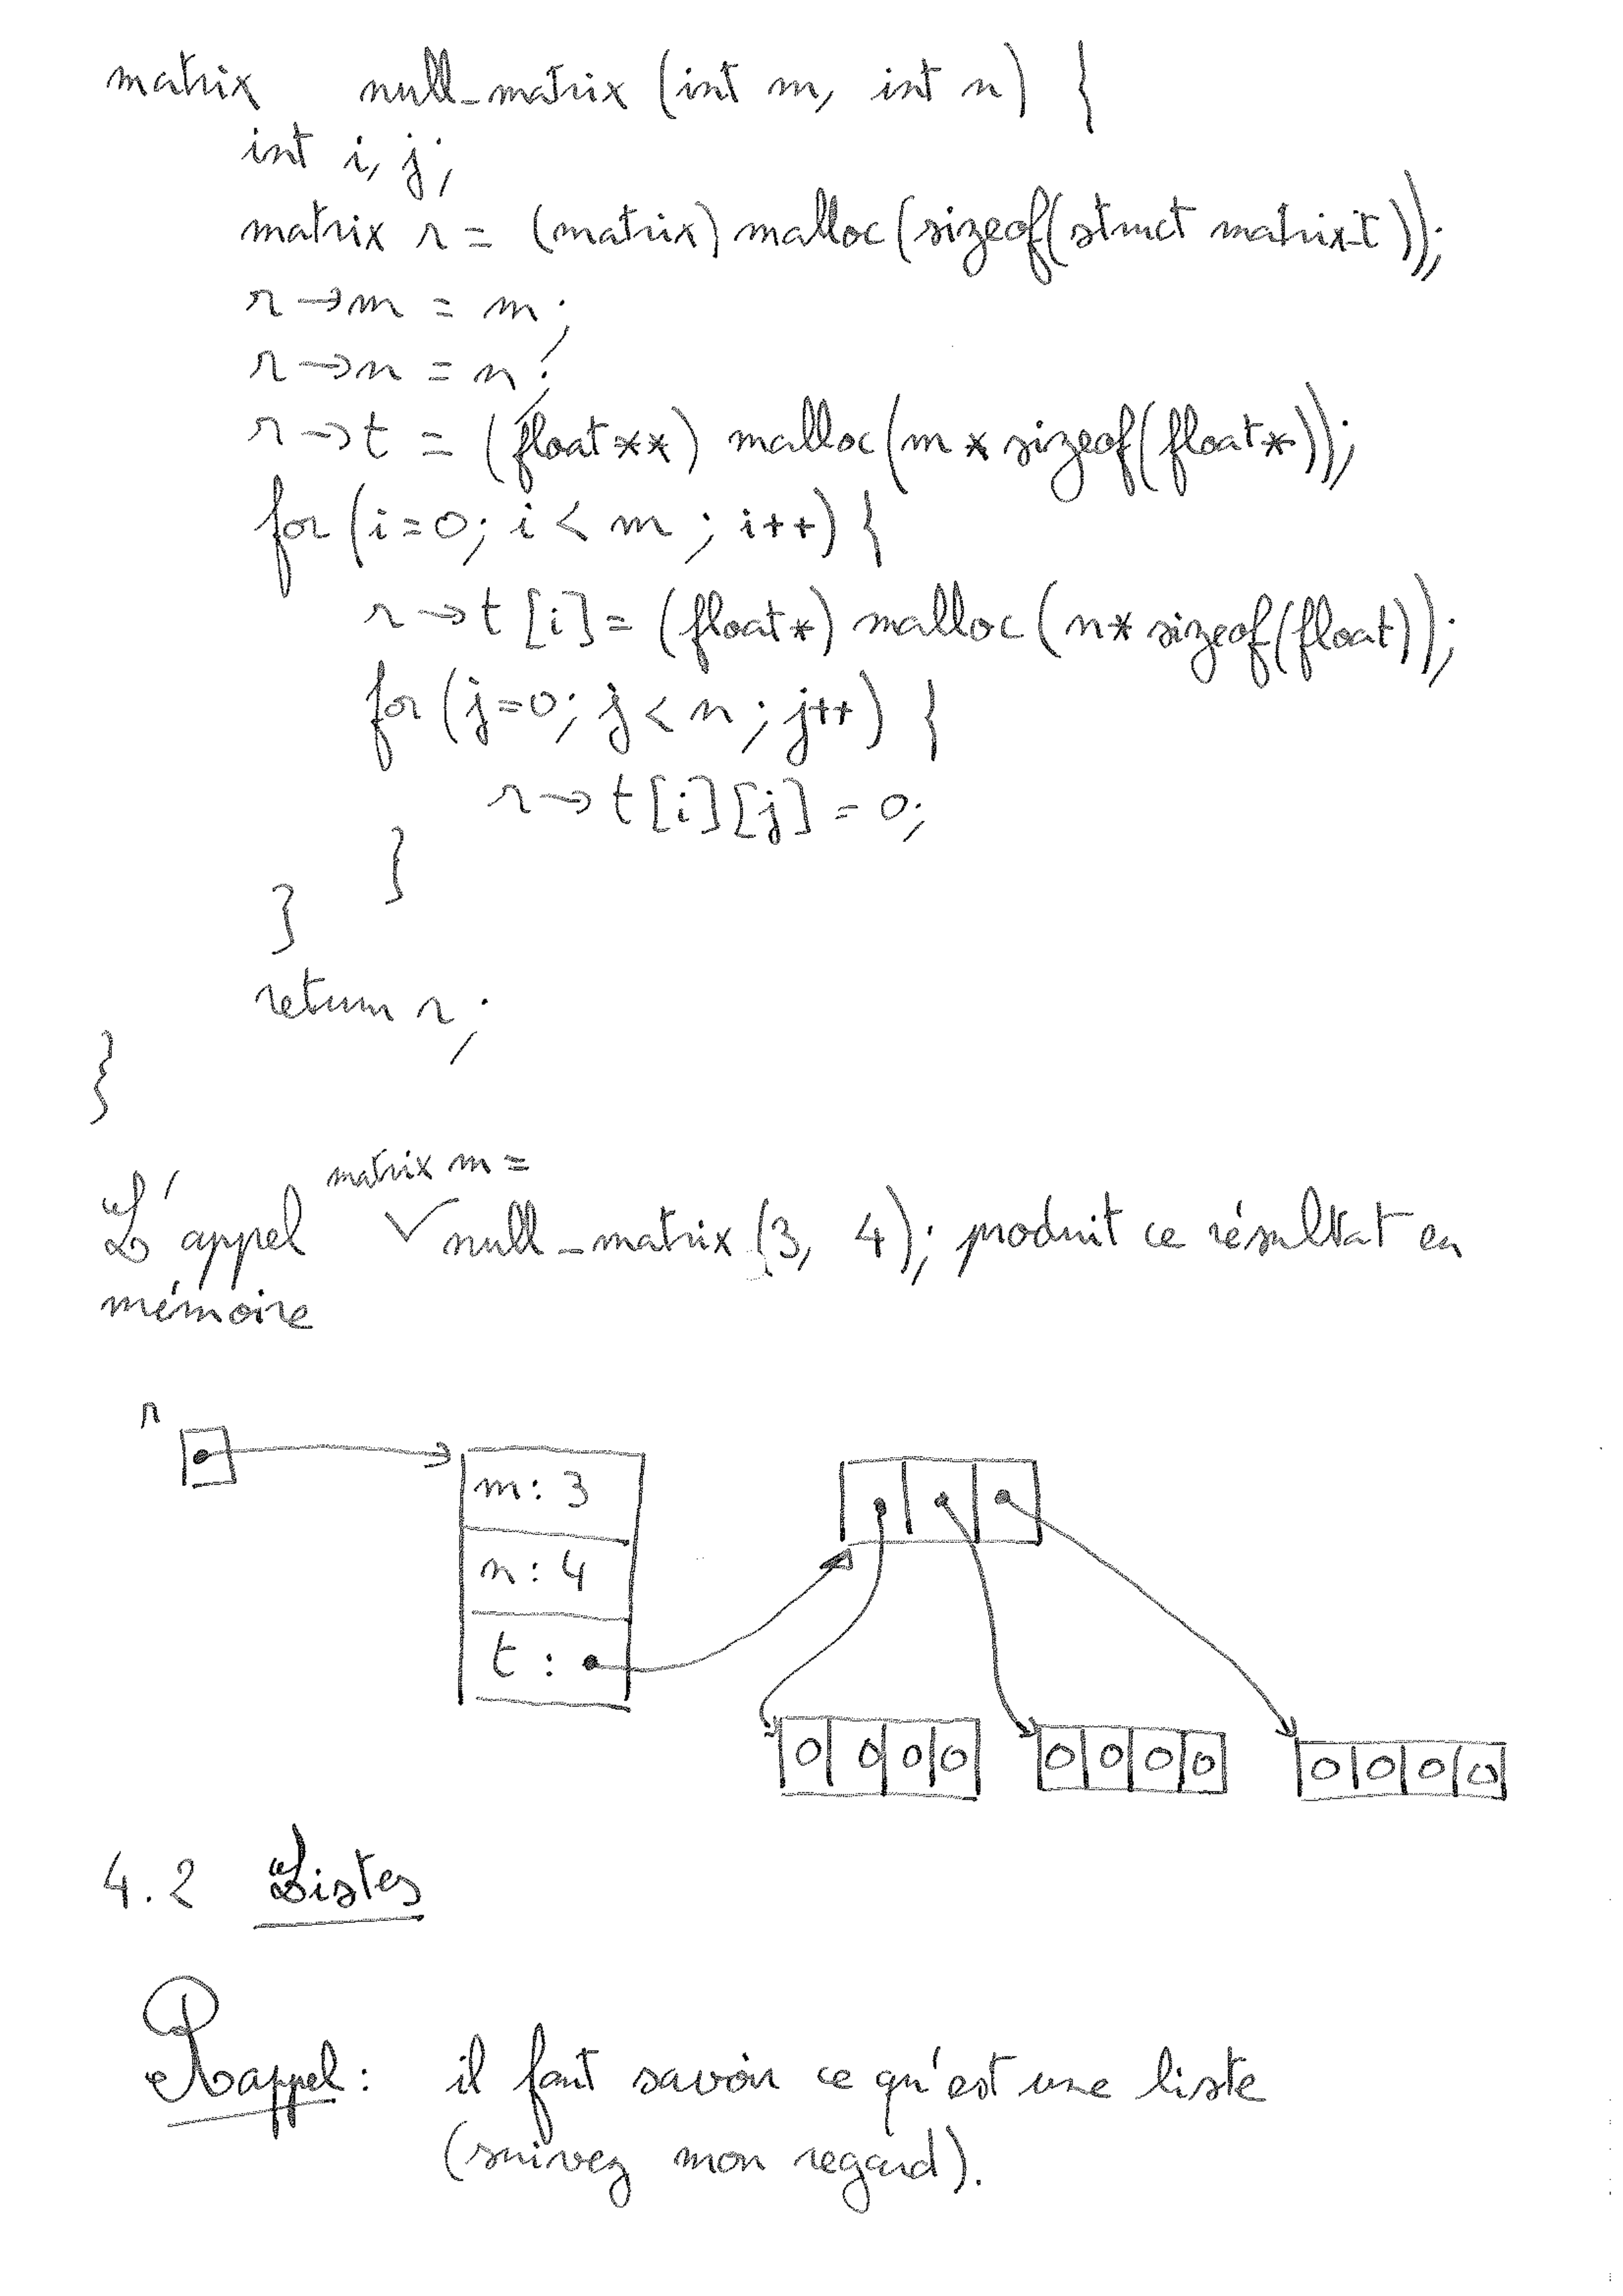 matrix null_matrix (int m, int n) {
int i, j;
matrix r = (matrix) malloc(sizeof(struct matrix_t));
r→m = m;
r→n = n;
r→t = (float**) malloc(m * sizeof(float*));
for (i=0; i < m ; i++) {
r→t[i] = (float*) malloc (n* sizeof(float));
for (j=0; j < n ; j++) {
r→t[i][j] = 0;
}
}
return r;
}
matrix m =
L'appel ✓ null_matrix (3, 4); produit ce résultat en
mémoire
r
m: 3
n: 4
t :
0 0 0 0
0 0 0 0
0 0 0 0
4.2 Listes
Rappel : il faut savoir ce qu'est une liste
(suivez mon regard).